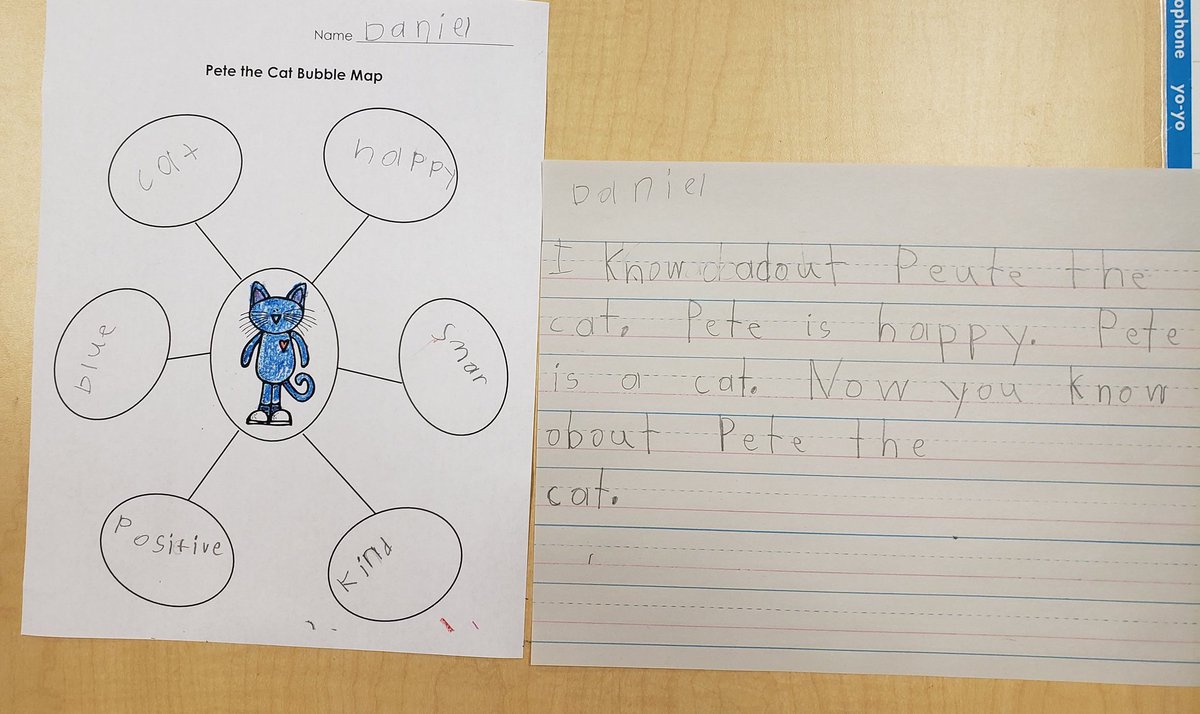 Name Daniel
Pete the Cat Bubble Map
cat
happy
blue
Smar
Positive
Kind
Daniel
I Know adout Peute the
cat. Pete is happy. Pete
is a cat. Now you Know
obout Pete the
cat.
ophone yo-yo